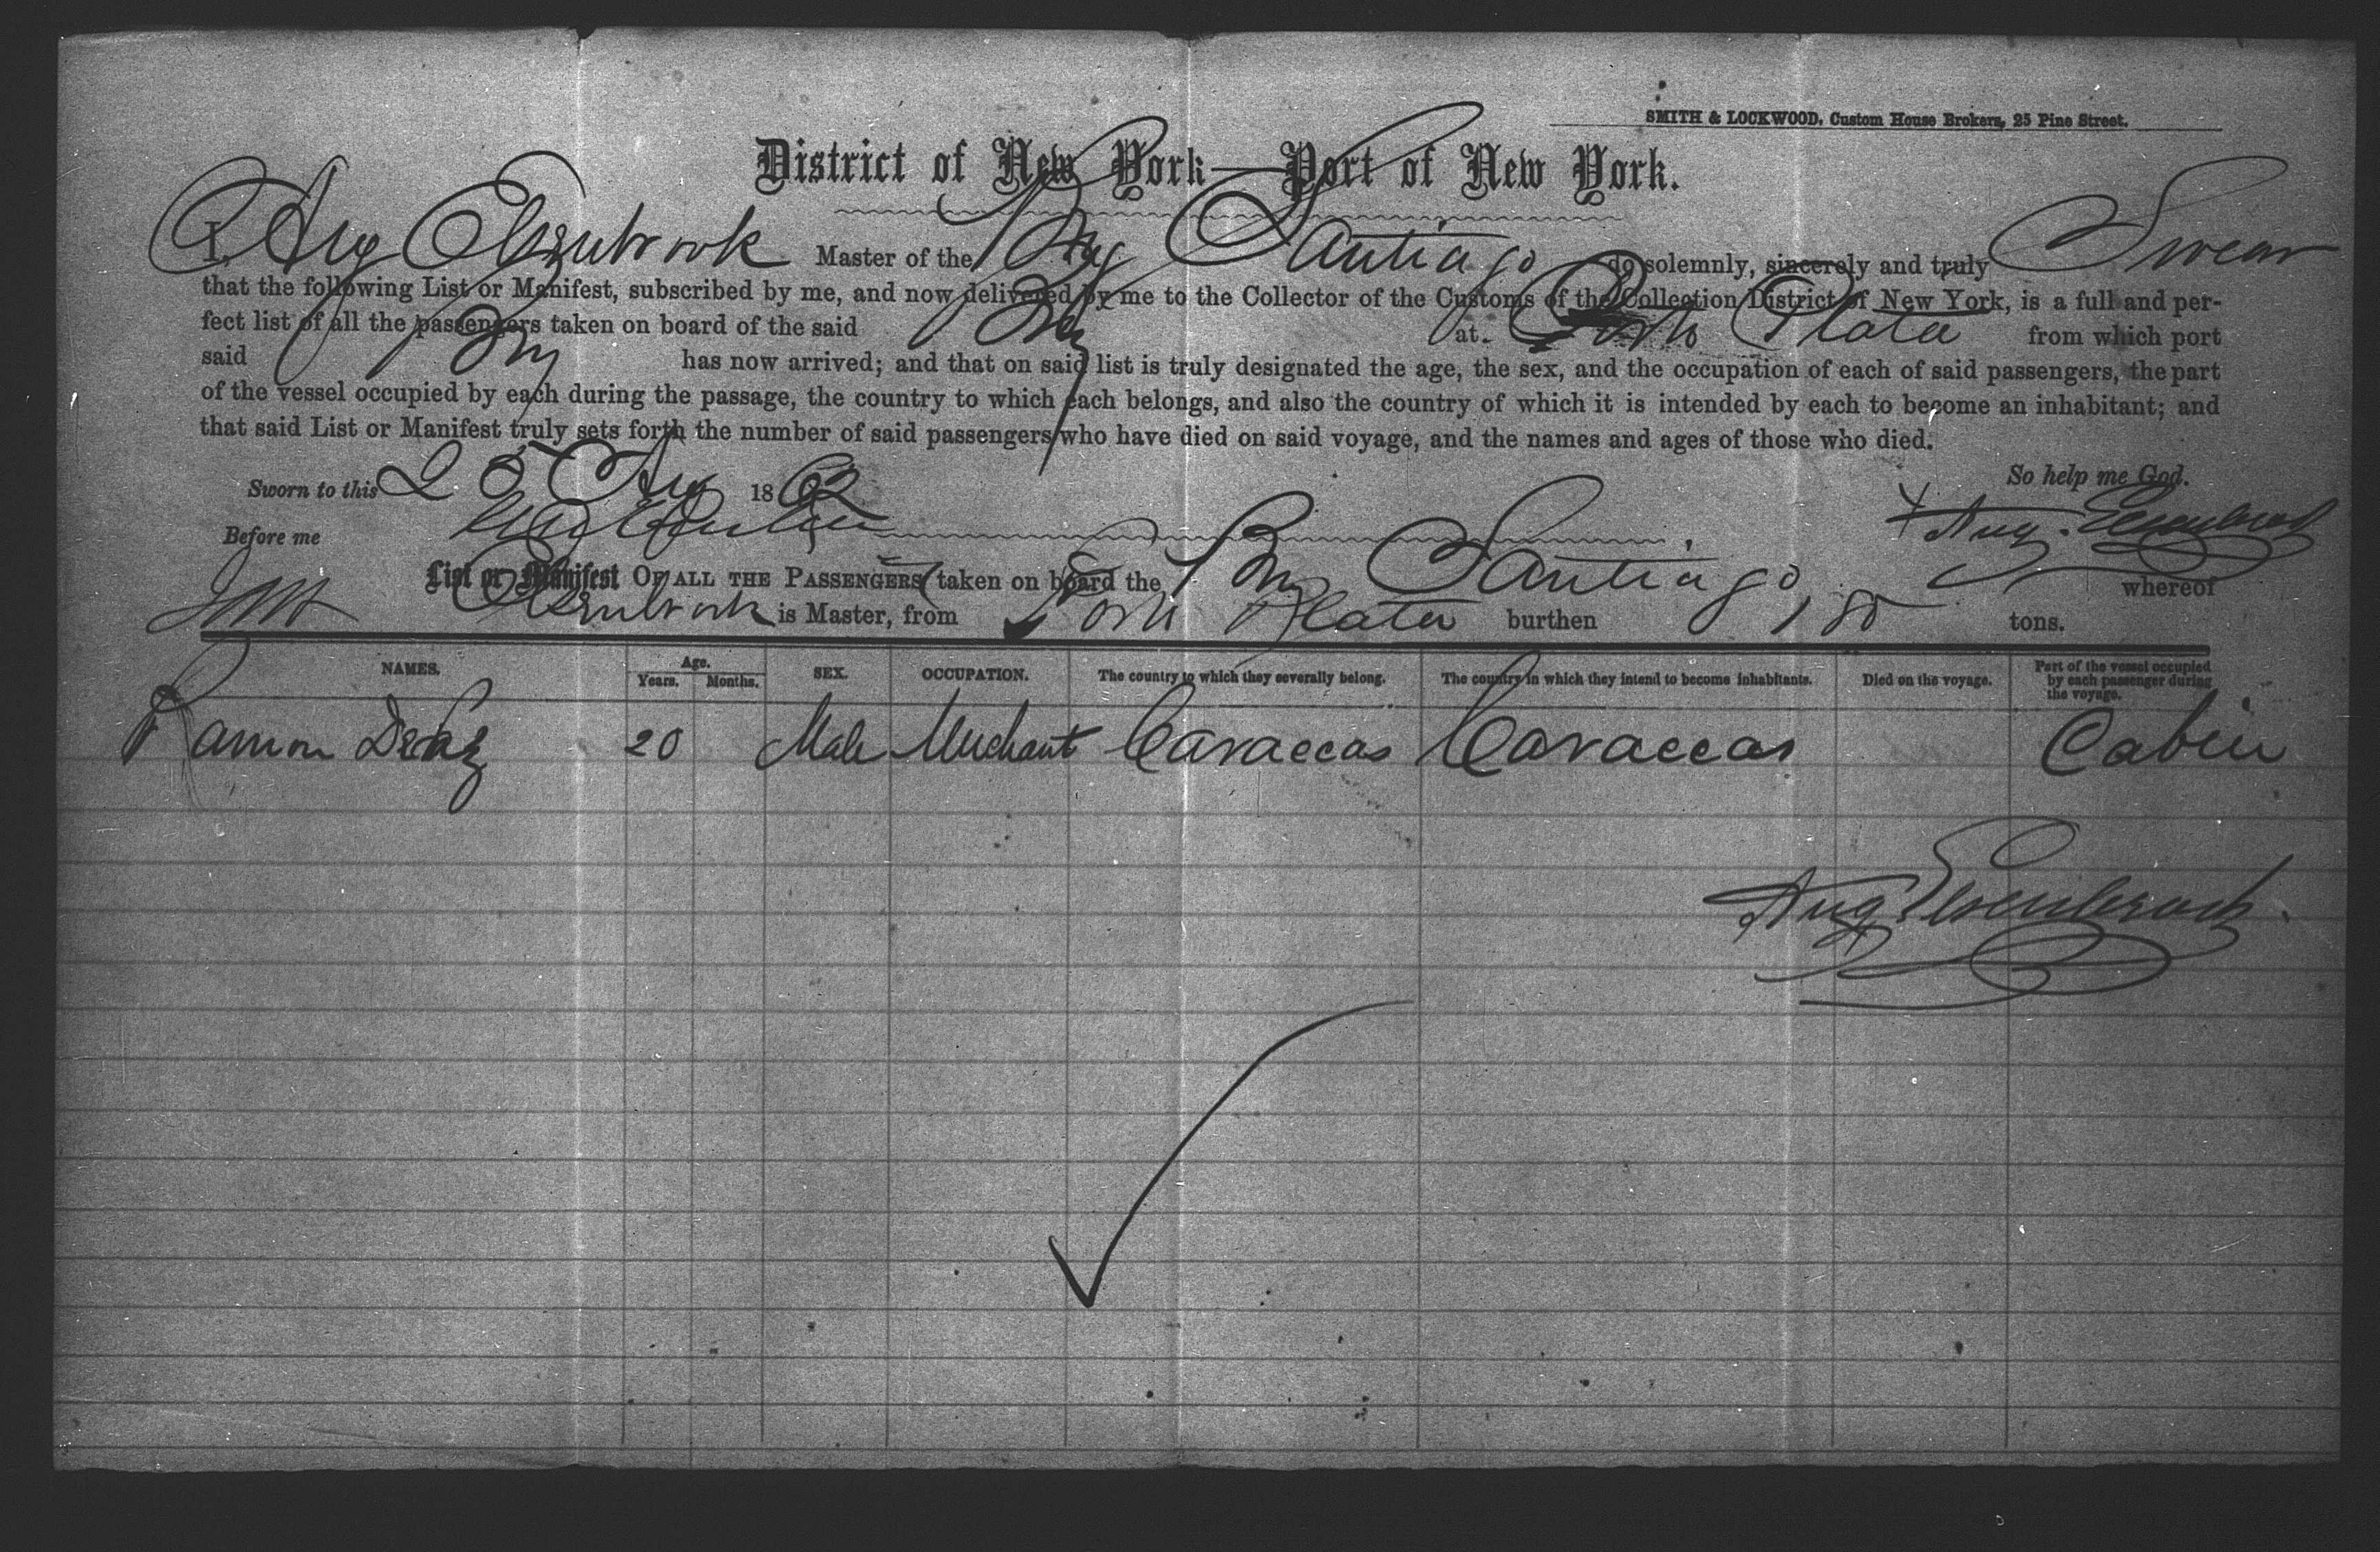 SMITH & LOCKWOOD, Custom House Brokers, 25 Pine Street.
District of New York — Port of New York.
I, Aug Elsenbrook Master of the Brig Santiago do solemnly, sincerely and truly Swear
that the following List or Manifest, subscribed by me, and now delivered by me to the Collector of the Customs of the Collection District of New York, is a full and per-
fect list of all the passengers taken on board of the said Brig at Porto Plata from which port
said Brig has now arrived; and that on said list is truly designated the age, the sex, and the occupation of each of said passengers, the part
of the vessel occupied by each during the passage, the country to which each belongs, and also the country of which it is intended by each to become an inhabitant; and
that said List or Manifest truly sets forth the number of said passengers who have died on said voyage, and the names and ages of those who died.
So help me God.
Sworn to this 25 Aug 1862
Before me
Aug. Elsenbrook
List or Manifest OF ALL THE PASSENGERS taken on board the Brig Santiago whereof
Elsenbrook is Master, from Porto Plata burthen 185 tons.
NAMES. Age. Years. Months. SEX. OCCUPATION. The country to which they severally belong. The country in which they intend to become inhabitants. Died on the voyage. Part of the vessel occupied by each passenger during the voyage.
Ramon Diaz 20 Male Merchant Caraccas Caraccas Cabin
Aug Elsenbrock.